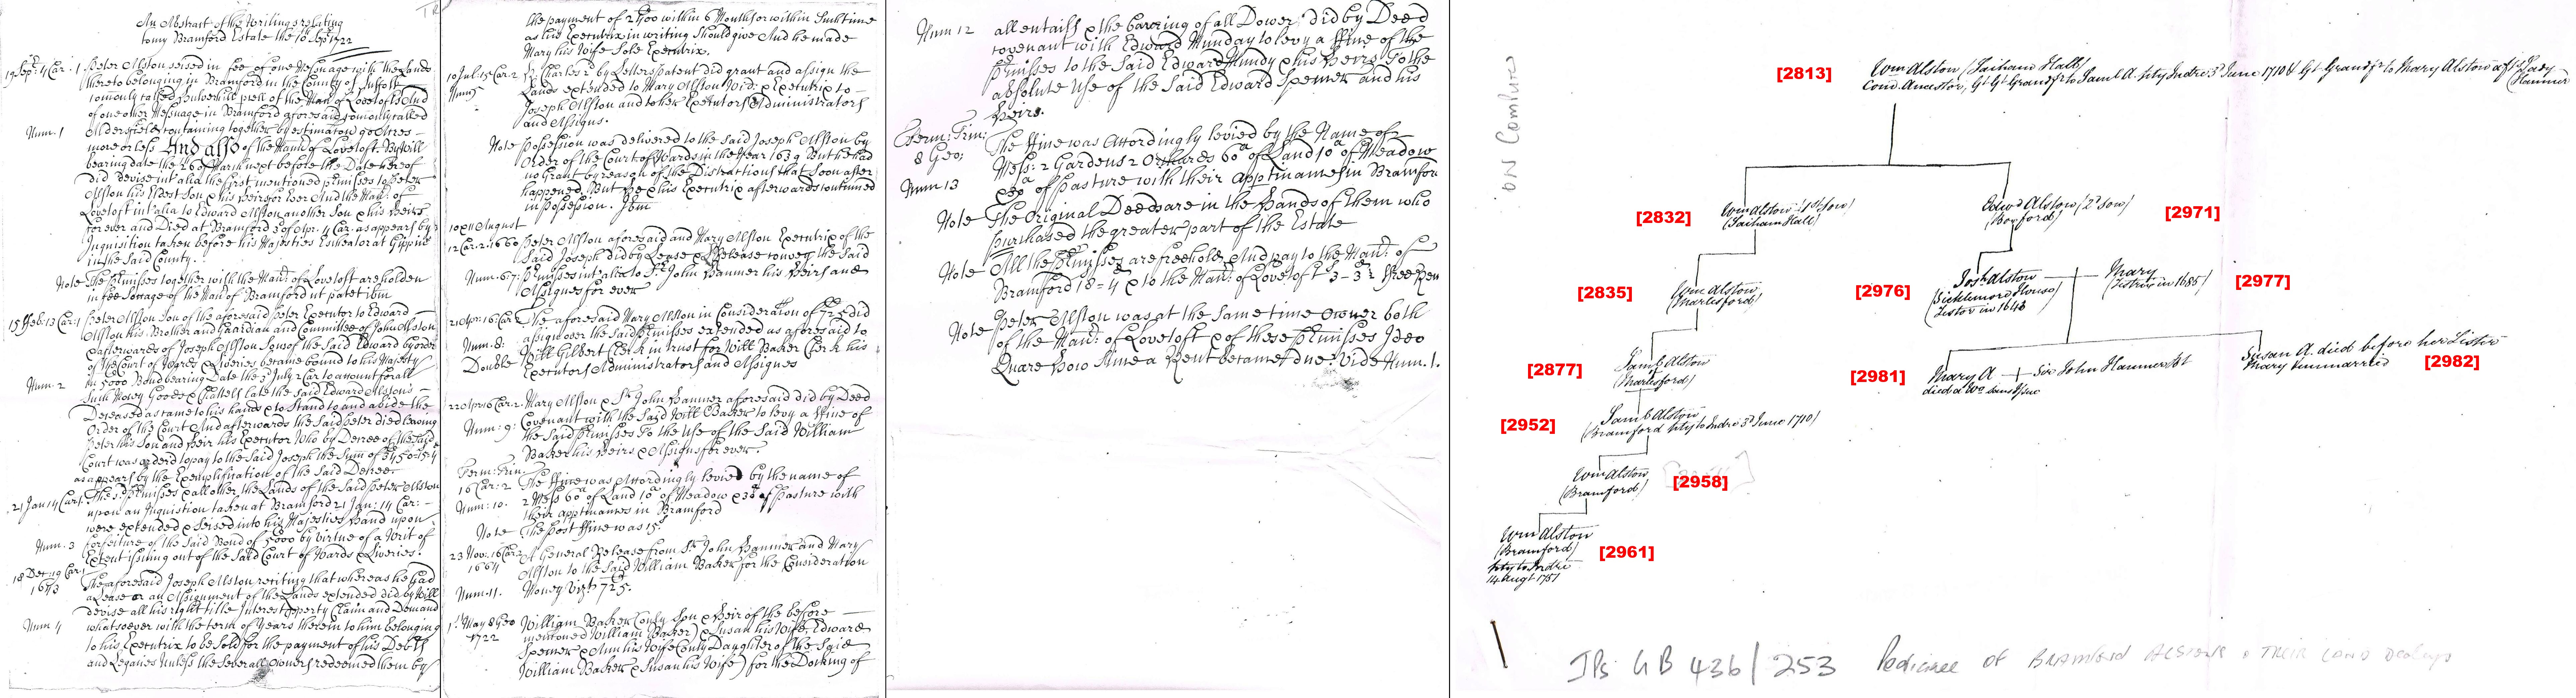 An Abstract of the Writings relating
to my Bramford Estate the 10th Sepr 1722
19 Sepr: 4 Car: 1 Peter Alston seised in fee of one Messuage with the Lands
thereto belonging in Bramford in the County of Suffolk
comonly called
of one other Messuage in Bramford aforesaid comonly called
Num. 1 containing together by estimation 90 Acres
more or less And also of the Mannr of Lovetoft. By Will
bearing date the 26 of March next before the Date thereof
did devise int alia the first mentioned pmisses to Peter
Alston his Eldest Son & his Heirs for ever And the Mannr of
Lovetoft int alia to Edward Alston another Son & his Heirs
forever and Died at Bramford 3d of Apr. 4 Car. as appears by
Inquisition taken before his Majesties Escheator at Gippus
in the said County.
Note The pmisses together with the Mannr of Lovetoft are holden
in fee Soccage of the Mannr of Bramford ut patet ibm
15 Feb: 13 Car: 1 Peter Alston Son of the aforesaid Peter Executor to Edward
Alston his Brother and Guardian and Committee of John Alston
& afterwards of Joseph Alston Sons of the said Edward by order
of the Court of Wards & Liveries became bound to his Majesty
Num. 2 in 5000 Bond bearing Date the 3d July 2 Car to account for all
such Money Goods & Chattels late the said Edward Alstons
Deceased as came to his hands & to Stand to and abide the
Order of the Court And afterwards the said Peter died leaving
Peter his Son and Heir his Executor who by Decree of the said
Court was orderd to pay to the said Joseph the Sum of
as appears by the Exemplification of the said Decree.
21 Jan 14 Car 1. The sd. pmisses & all other the Lands of the said Peter Alston
upon an Inquisition taken at Bramford 21 Jan: 14 Car: –
were extended & seised into his Majesties hand upon
Num. 3 forfeiture of the said Bond of 5000 by virtue of a Writ of
Extent issuing out of the said Court of Wards & Liveries.
18 Dec: 19 Car: 1 The aforesaid Joseph Alston reciting that whereas he had
1643 a Lease or an Assignment of the Lands extended did by Will
devise all his right title Interest pperty Claim and Demand
Num 4 whatsoever with the term of Years therein to him belonging
to his Executrix to be Sold for the payment of his Debts
and Legacies unless the severall owners redeemed them by
the payment of 2400 within 6 Months or within Such time
as his Executrix in writing Should give And he made
Mary his Wife Sole Executrix.
10 Jul. 15 Car. 2 K. Charles 2d by Letters patent did grant and assign the
Num 5 Lands extended to Mary Alston Wid: & Executrix to
Joseph Alston and to her Executors Administrators
and Assigns.
Note Possession was delivered to the said Joseph Alston by
Order of the Court of Wards in the Year 1639 But he had
no Grant by reason of the Distractions that Soon after
happened. But he & his Executrix afterwards continued
in possession. Ibm
10 & 11 August
12 Car. 2. 1660 Peter Alston aforesaid and Mary Alston Executrix of the
said Joseph did by Lease & Release convey the said
Num. 6. 7. pmisses int alia to Sr. John Hanmer his Heirs and
Assignes for ever
21 Apr. 16 Car. 2 The aforesaid Mary Alston in Consideration of 725 did
Num. 8. assign over the said pmisses extended as aforesaid to
Double Will Gilbert Clerk in trust for Will Baker Clerk his
Executors Administrators and Assignes
22 Apr 16 Car. 2. Mary Alston & Sr. John Hanmer aforesaid did by Deed
Num: 9: Covenant with the said Will Baker to levy a Fine of
the said pmisses to the Use of the said William
Baker his Heirs & Assigns for ever.
Term: Trin:
16 Car: 2 The Fine was accordingly levied by the name of
Num: 10. 2 Mess 60a of Land 10a of Meadow & 30a of Pasture with
their apptinances in Bramford
Note The post Fine was 15s
23 Nov. 16 Car. 2 A General Release from Sr. John Hanmer and Mary
1664 Alston to the said William Baker for the Consideration
Num. 11. Money vizt. 725.
1st. May 8 Geo William Baker (only Son & Heir of the before
1722 mentioned William Baker) & Susan his Wife, Edward
Spenser & Ann his Wife (only Daughter of the said
William Baker & Susan his Wife) for the Docking of
Num 12 all entails & the barring of all Dower did by Deed
covenant with Edward Munday to levy a Fine of the
pmisses to the said Edward Mundy & his Heirs To the
absolute Use of the said Edward Spenser and his
Heirs.
Term: Trin:
8 Geo: The Fine was accordingly levied by the Name of
2 Mess: 2 Gardens 2 Orchards 60a of Land 10a of Meadow
Num 13 & 30a of Pasture with their apptinances in Bramford
Note The Original Deeds are in the Hands of them who
purchased the greater part of the Estate
Note All the pmisses are freehold And pay to the Mannr of
Bramford 18=4 & to the Mannr of Lovetoft 3-3½ Free Ren
Note Peter Alston was at the same time owner both
of the Mannr of Lovetoft & of these pmisses Ideo
Quare how Since a Rent became due. Vide Num. 1.
ON Computer
[2813] Wm Alston (Saiham Hall)
Com. Ancestor, Gt Gt Grandfr to Saml A. pty Indre 3d June 1710 & Gt Grandfr to Mary Alston aftds Lady Hanmer
[2832] Wm Alston (1st Son)
(Saiham Hall)
Edwd Alston (2d Son)
(Boxford)
[2971]
[2835] Wm Alston
(Marlesford)
[2976] Josh Alston
(Bicklemore House)
Testor in 1643
Mary
(Testrix in 1685)
[2977]
[2877] Saml Alston
(Marlesford)
[2981] Mary A. Sir John Hanmer Bt
died a Wo. sine
Susan A. died before her Sister
Mary unmarried
[2982]
[2952] Saml Alston
(Bramford pty to Indre 3d June 1710)
Wm Alston
(Bramford)
[2958]
Wm Alston
(Bramford)
pty to Indre
14 Augt 1751
[2961]
JPs GB 436/253 Pedigree of BRAMFORD ALSTONS & THEIR LAND Dealings